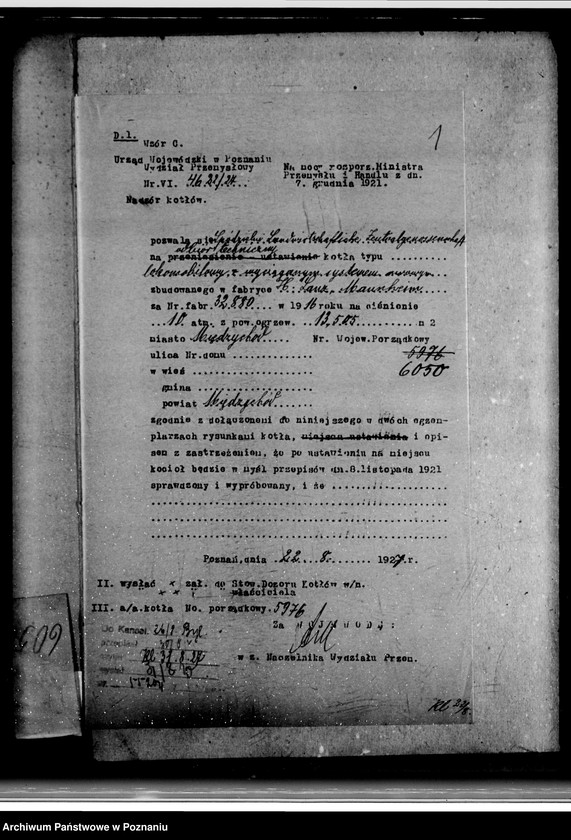 D.1.
Wzór C.
1
Urząd Wojewódzki w Poznaniu
Wydział Przemysłowy
Nr.VI.
Nadzór kotłów.
Na mocy rozporz.Ministra
Przemysłu i Handlu z dn.
7. grudnia 1921.
pozwala się Landwirtschaftliche Zentralgenossenschaft
odbiór techniczny
na przeniesienie - ustawienie kotła typu
lokomobilowy z wyciąganym systemem
zbudowanego w fabryce H. Lanz, Mannheim
za Nr.fabr. 32.880 w 1916 roku na ciśnienie
10. atm. z pow.ogrzew. 13,525 m 2
miasto Międzychód Nr. Wojew.Porządkowy
ulica Nr.domu 5976
w wieś 6050
gmina
powiat Międzychód
zgodnie z dołączonemi do niniejszego w dwóch egzem-
plarzach rysunkami kotła, miejsca ustawienia i opi-
sem z zastrzeżeniem, że po ustawieniu na miejscu
kocioł będzie w myśl przepisów dn.8.listopada 1921
sprawdzony i wypróbowany, i że
Poznań,dnia 22. 8. 1927.r.
II. wysłać x zał. do Stow.Dozoru Kotłów w/m.
x x właściciela
III. a/a.kotła No. porządkowy. 5976
Za WOJEWODĘ:
w z. Naczelnika Wydziału Przem.
Do Kancel.
609
Archiwum Państwowe w Poznaniu